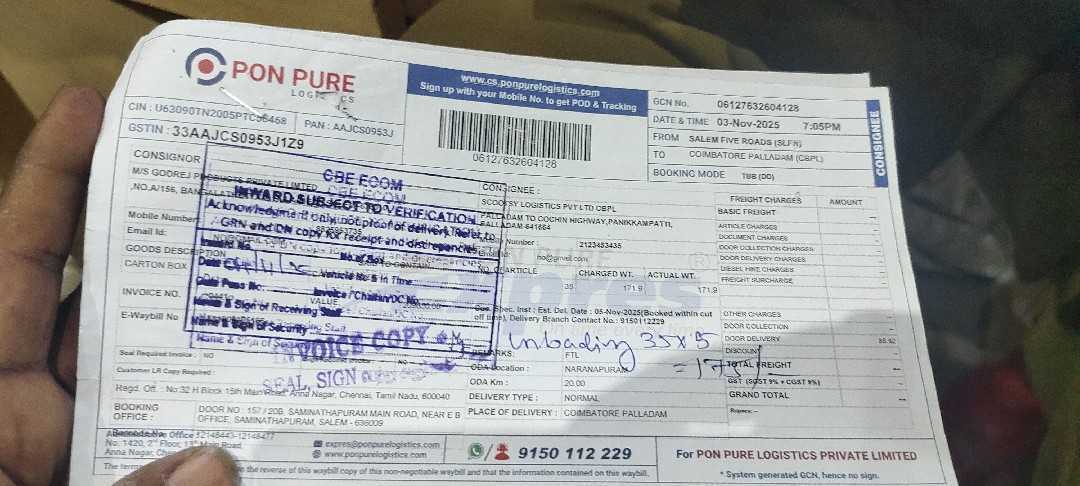 PON PURE
LOGISTICS
www.cs.ponpurelogistics.com
Sign up with your Mobile No. to get POD & Tracking
06127632604128
GCN No. 06127632604128
DATE & TIME 03-Nov-2025 7:05PM
FROM SALEM FIVE ROADS (SLFR)
TO COIMBATORE PALLADAM (CBPL)
BOOKING MODE TBB (DD)
CONSIGNEE
PAN : AAJCS0953J
GSTIN : 33AAJCS0953J1Z9
CONSIGNOR
M/S GODREJ PRODUCTS PRIVATE LIMITED
,NO.A/156,
Mobile Number
Email Id:
GOODS DESCRIPTION
CARTON BOX
INVOICE NO.
VALUE
E-Waybill No
CBE ECOM
INWARD SUBJECT TO VERIFICATION
Acknowledgment only, not proof of delivery. Refer to
GRN and DN copy for receipt and discrepencies
No.of Box
Vehicle No & In Time
Gate Pass No: Invoice / Challan/DC No.
Name & Sign of Receiving Staff
Name & Sign of Security
INVOICE COPY
SEAL, SIGN
CONSIGNEE :
SCOOTSY LOGISTICS PVT LTD CBPL
PALLADAM TO COCHIN HIGHWAY,PANIKKAMPATTI,
PALLADAM-641664
Number : 2123453435
ho@gmail.com
NO. OF ARTICLE CHARGED WT. ACTUAL WT.
35 171.9 171.9
Spec. Inst : Est. Del. Date : 05-Nov-2025(Booked within cut
off time), Delivery Branch Contact No.: 9150112229
Unloading 35x5
= 175/-
REMARKS: FTL
ODA Location : NARANAPURAM
ODA Km : 20.00
DELIVERY TYPE : NORMAL
PLACE OF DELIVERY : COIMBATORE PALLADAM
FREIGHT CHARGES AMOUNT
BASIC FREIGHT --
ARTICLE CHARGES --
DOCUMENT CHARGES --
DOOR COLLECTION CHARGES --
DOOR DELIVERY CHARGES --
DIESEL HIKE CHARGES --
FREIGHT SURCHARGE --
OTHER CHARGES --
DOOR COLLECTION --
DOOR DELIVERY
DISCOUNT --
TOTAL FREIGHT --
GST (SGST 9% + CGST 9%) --
GRAND TOTAL --
Rupees: --
Seal Required Invoice : NO
Customer LR Copy Required :
Regd. Off. : No:32 H Block 15th Main Road, Anna Nagar, Chennai, Tamil Nadu, 600040
BOOKING OFFICE : DOOR NO : 157 / 20B, SAMINATHAPURAM MAIN ROAD, NEAR E B
OFFICE, SAMINATHAPURAM, SALEM - 636009
Office 12148443-12148477
No: 1420, 2nd Floor, 13th Main Road,
Anna Nagar,
expres@ponpurelogistics.com
www.ponpurelogistics.com
9150 112 229
For PON PURE LOGISTICS PRIVATE LIMITED
* System generated GCN, hence no sign.
The terms
the reverse of this waybill copy of this non-negotiable waybill and that the information contained on this waybill.